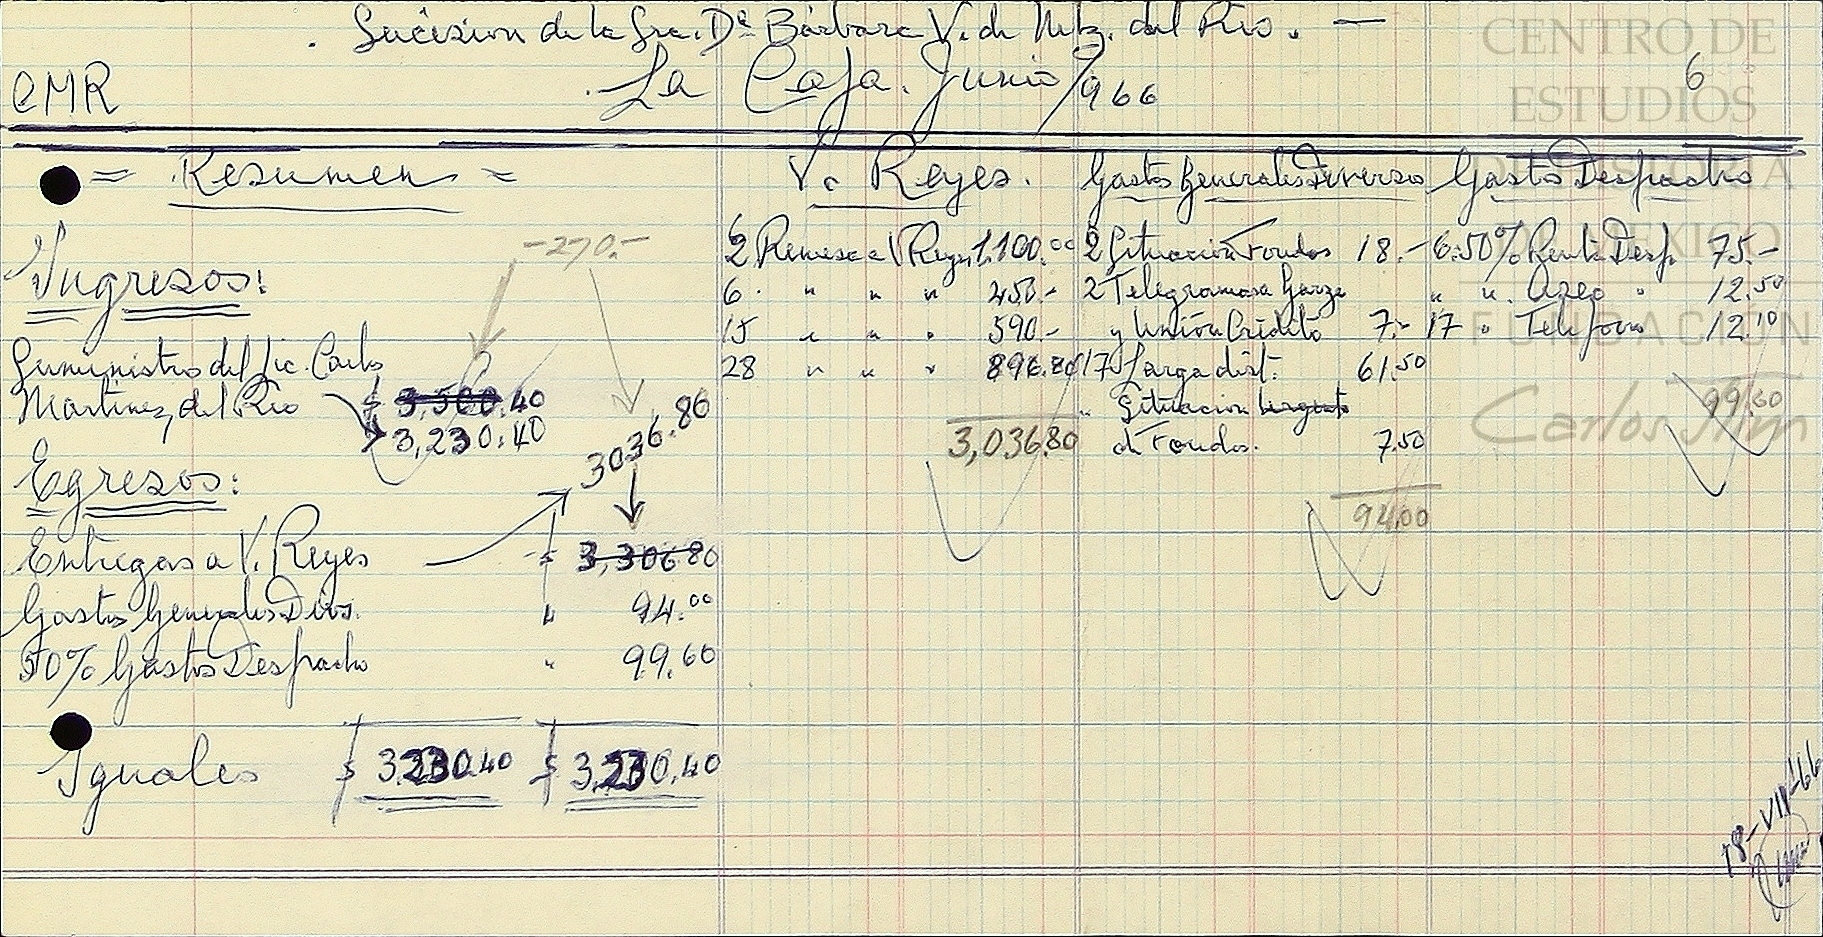 Sucesion de la Sra. Dª Bárbara V. de Mtz. del Rio. —
CMR
La Caja. Junio/966
6
CENTRO DE
ESTUDIOS
DE HISTORIA
DE MEXICO
FUNDACIÓN
Carlos Slim
= Resumen =
Ingresos:
-270.-
Suministro del Lic. Carlos
Martinez del Rio $ 3,500.40
3,230.40
Egresos:
3036.80
Entregas a V. Reyes $ 3,306.80
Gastos Generales Divs. " 94.00
50% Gastos Despacho " 99.60
Iguales $ 3,230.40 $ 3,230.40
V. Reyes.
2 Remesa a V Reyes 1.100.00
6. " " " 450.-
15 " " " 590.-
28 " " " 896.80
3,036.80
Gastos Generales Diversos
2 Situación Fondos 18.-
2 Telegramas a Garza
y Unión Crédito 7.-
17 Larga dist. 61.50
" Situacion urgente
de Fondos. 7.50
94.00
Gastos Despacho
6. 50% Renta Desp. 75.-
" " Aseo " 12.50
17 " Telefono 12.10
99.60
18-VII-66